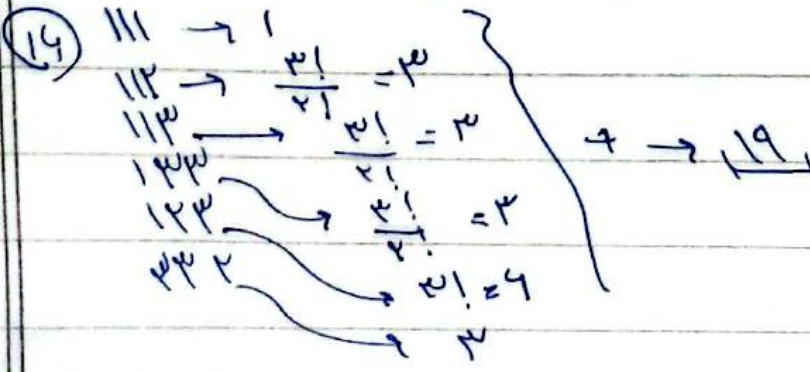 ۱۴ ۱۱۱ → ۱
۱۱۲ → ۳!/۲! = ۳
۱۱۳ → ۳!/۲! = ۳
۱۳۳ → ۳!/۲! = ۳
۱۲۳ → ۳! = ۶
۳۳۲ → ۳
+ → ۱۹